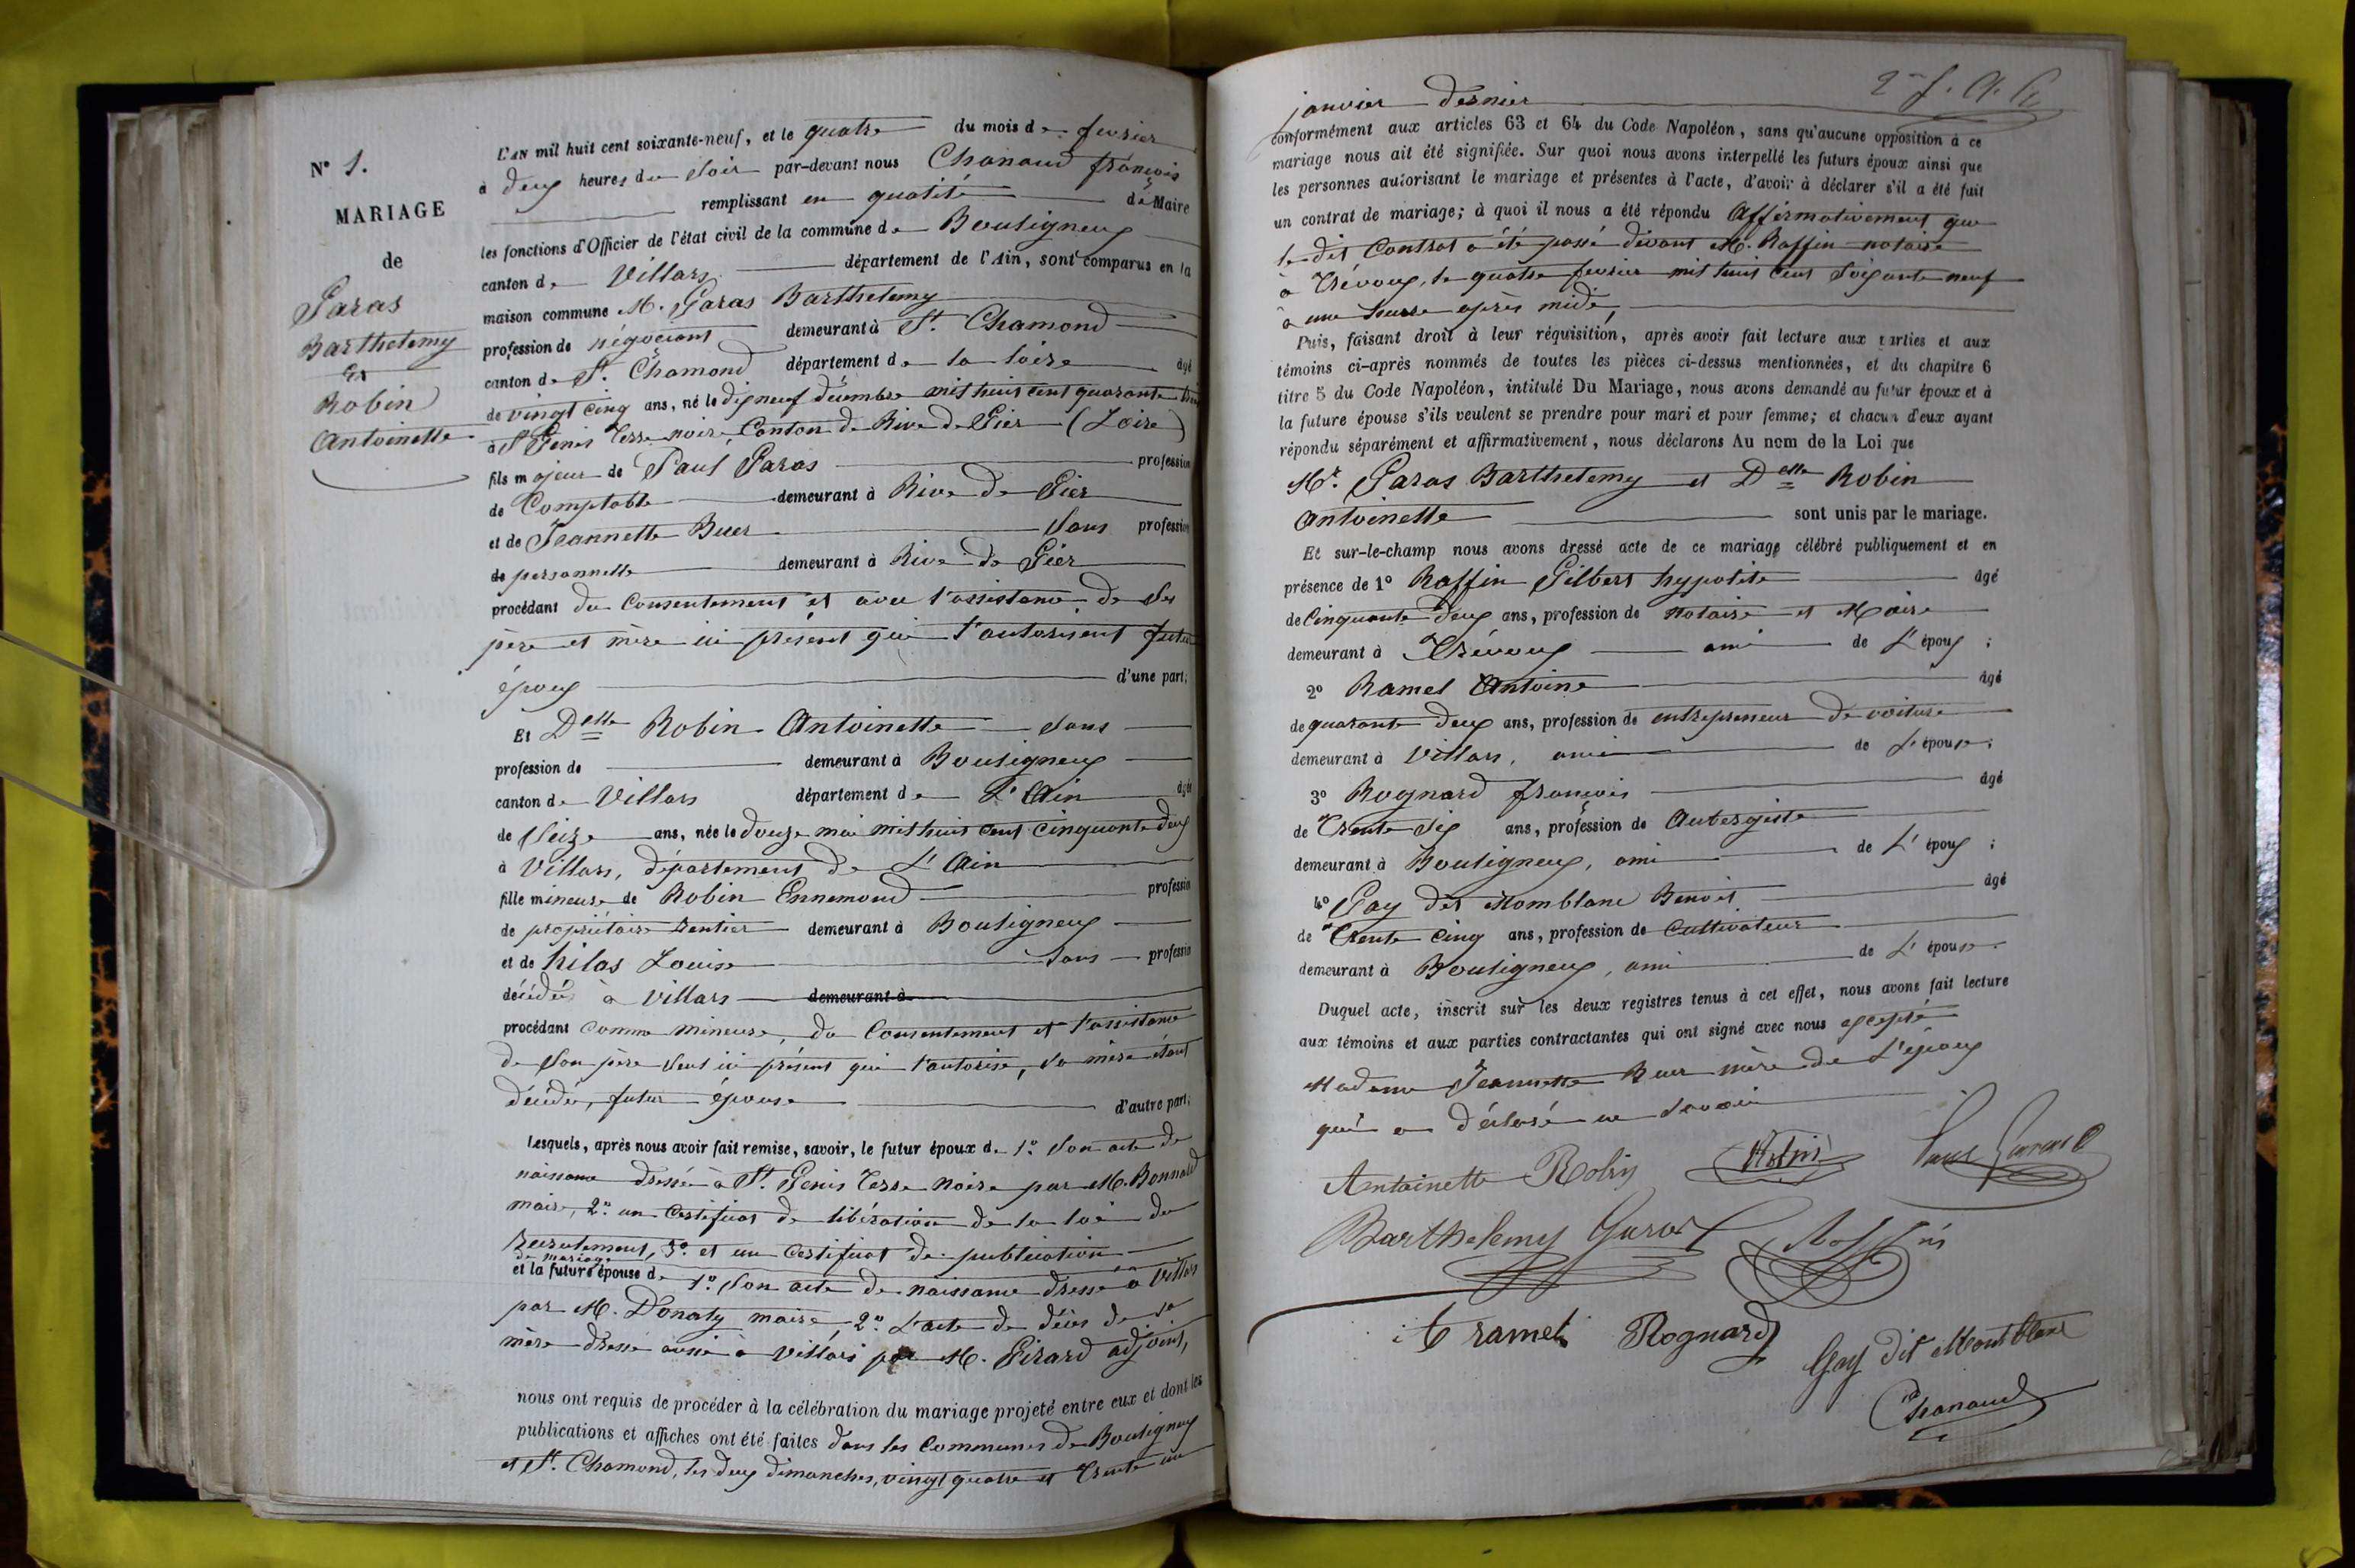 N° 1.
MARIAGE
de
Garas
Barthelemy
et
Robin
Antoinette
L'AN mil huit cent soixante-neuf, et le quatre du mois de fevrier
à deux heures du soir par-devant nous Chanaud françois
remplissant en qualité de Maire
les fonctions d'Officier de l'état civil de la commune de Bouligneux
canton de Villars département de l'Ain, sont comparus en la
maison commune M. Garas Barthelemy
profession de négociant demeurant à St. Chamond
canton de St. Chamond département de la loire âgé
de vingt cinq ans, né le dix neuf décembre mil huit cent quarante trois
à St Genis Terre noire, Canton de Rive de Gier (Loire)
fils majeur de Paul Garas profession
de Comptable demeurant à Rive de Gier
et de Jeannette Buer sans profession
de personnelle demeurant à Rive de Gier
procédant du Consentement et avec l'assistance de ses
père et mère ici présent qui l'autorisent futur
époux d'une part;
Et Delle Robin Antoinette sans
profession de demeurant à Bouligneux
canton de Villars département de L'Ain âgée
de Seize ans, née le douze mai mil huit cent cinquante deux
à Villars, département de L'Ain
fille mineure de Robin Ennemond profession
de propriétaire rentier demeurant à Bouligneux
et de hilas Louise sans profession
décédée à Villars demeurant à
procédant comme mineure, du Consentement et l'assistance
de son père seul ici présent qui l'autorise, sa mère étant
décédée, futur épouse d'autre part;
Lesquels, après nous avoir fait remise, savoir, le futur époux de 1.° Son acte de
naissance dressé à St. Genis Terre Noire par M. Bonnard
maire, 2.° un Certificat de libération de la loi du
recrutement, 3.° et un Certificat de publication
de mariage
et la future épouse de 1.° Son acte de naissance dressé à Villars
par M. Donaty maire 2.° L'acte de décès de sa
mère dressé aussi à Villars par M. Girard adjoint,
nous ont requis de procéder à la célébration du mariage projeté entre eux et dont les
publications et affiches ont été faites dans les Communes de Bouligneux
et St. Chamond, les deux dimanches, vingt quatre et trente un
janvier dernier
conformément aux articles 63 et 64 du Code Napoléon, sans qu'aucune opposition à ce
mariage nous ait été signifiée. Sur quoi nous avons interpellé les futurs époux ainsi que
les personnes autorisant le mariage et présentes à l'acte, d'avoir à déclarer s'il a été fait
un contrat de mariage; à quoi il nous a été répondu Affirmativement que
le dit Contrat a été passé devant M. Raffin notaire
à Trévoux, le quatre fevrier mil huit cent soixante neuf
à une heure après midi,
Puis, faisant droit à leur réquisition, après avoir fait lecture aux parties et aux
témoins ci-après nommés de toutes les pièces ci-dessus mentionnées, et du chapitre 6
titre 5 du Code Napoléon, intitulé Du Mariage, nous avons demandé au futur époux et à
la future épouse s'ils veulent se prendre pour mari et pour femme; et chacun d'eux ayant
répondu séparément et affirmativement, nous déclarons Au nom de la Loi que
Mr. Garas Barthelemy et Delle Robin
Antoinette sont unis par le mariage.
Et sur-le-champ nous avons dressé acte de ce mariage célébré publiquement et en
présence de 1° Raffin Gilbert hypolite âgé
de Cinquante deux ans, profession de Notaire et Maire
demeurant à Trévoux ami de L'époux ;
2° Ramel Antoine âgé
de quarante deux ans, profession de entrepreneur de voiture
demeurant à Villars, ami de L'épouse;
3° Rognard françois âgé
de Trente six ans, profession de Aubergiste
demeurant à Bouligneux, ami de L'époux ;
4° Gay dit Momblanc Benoit âgé
de Trente cinq ans, profession de Cultivateur
demeurant à Bouligneux, ami de L'épouse.
Duquel acte, inscrit sur les deux registres tenus à cet effet, nous avons fait lecture
aux témoins et aux parties contractantes qui ont signé avec nous excepté
Madame Jeannette Buer mère de L'époux
qui a déclaré ne savoir
Antoinette Robin Robin Paul Garas
Barthelemy Garas Raffin
A ramel Rognard Gay dit Montblanc
Chanaud